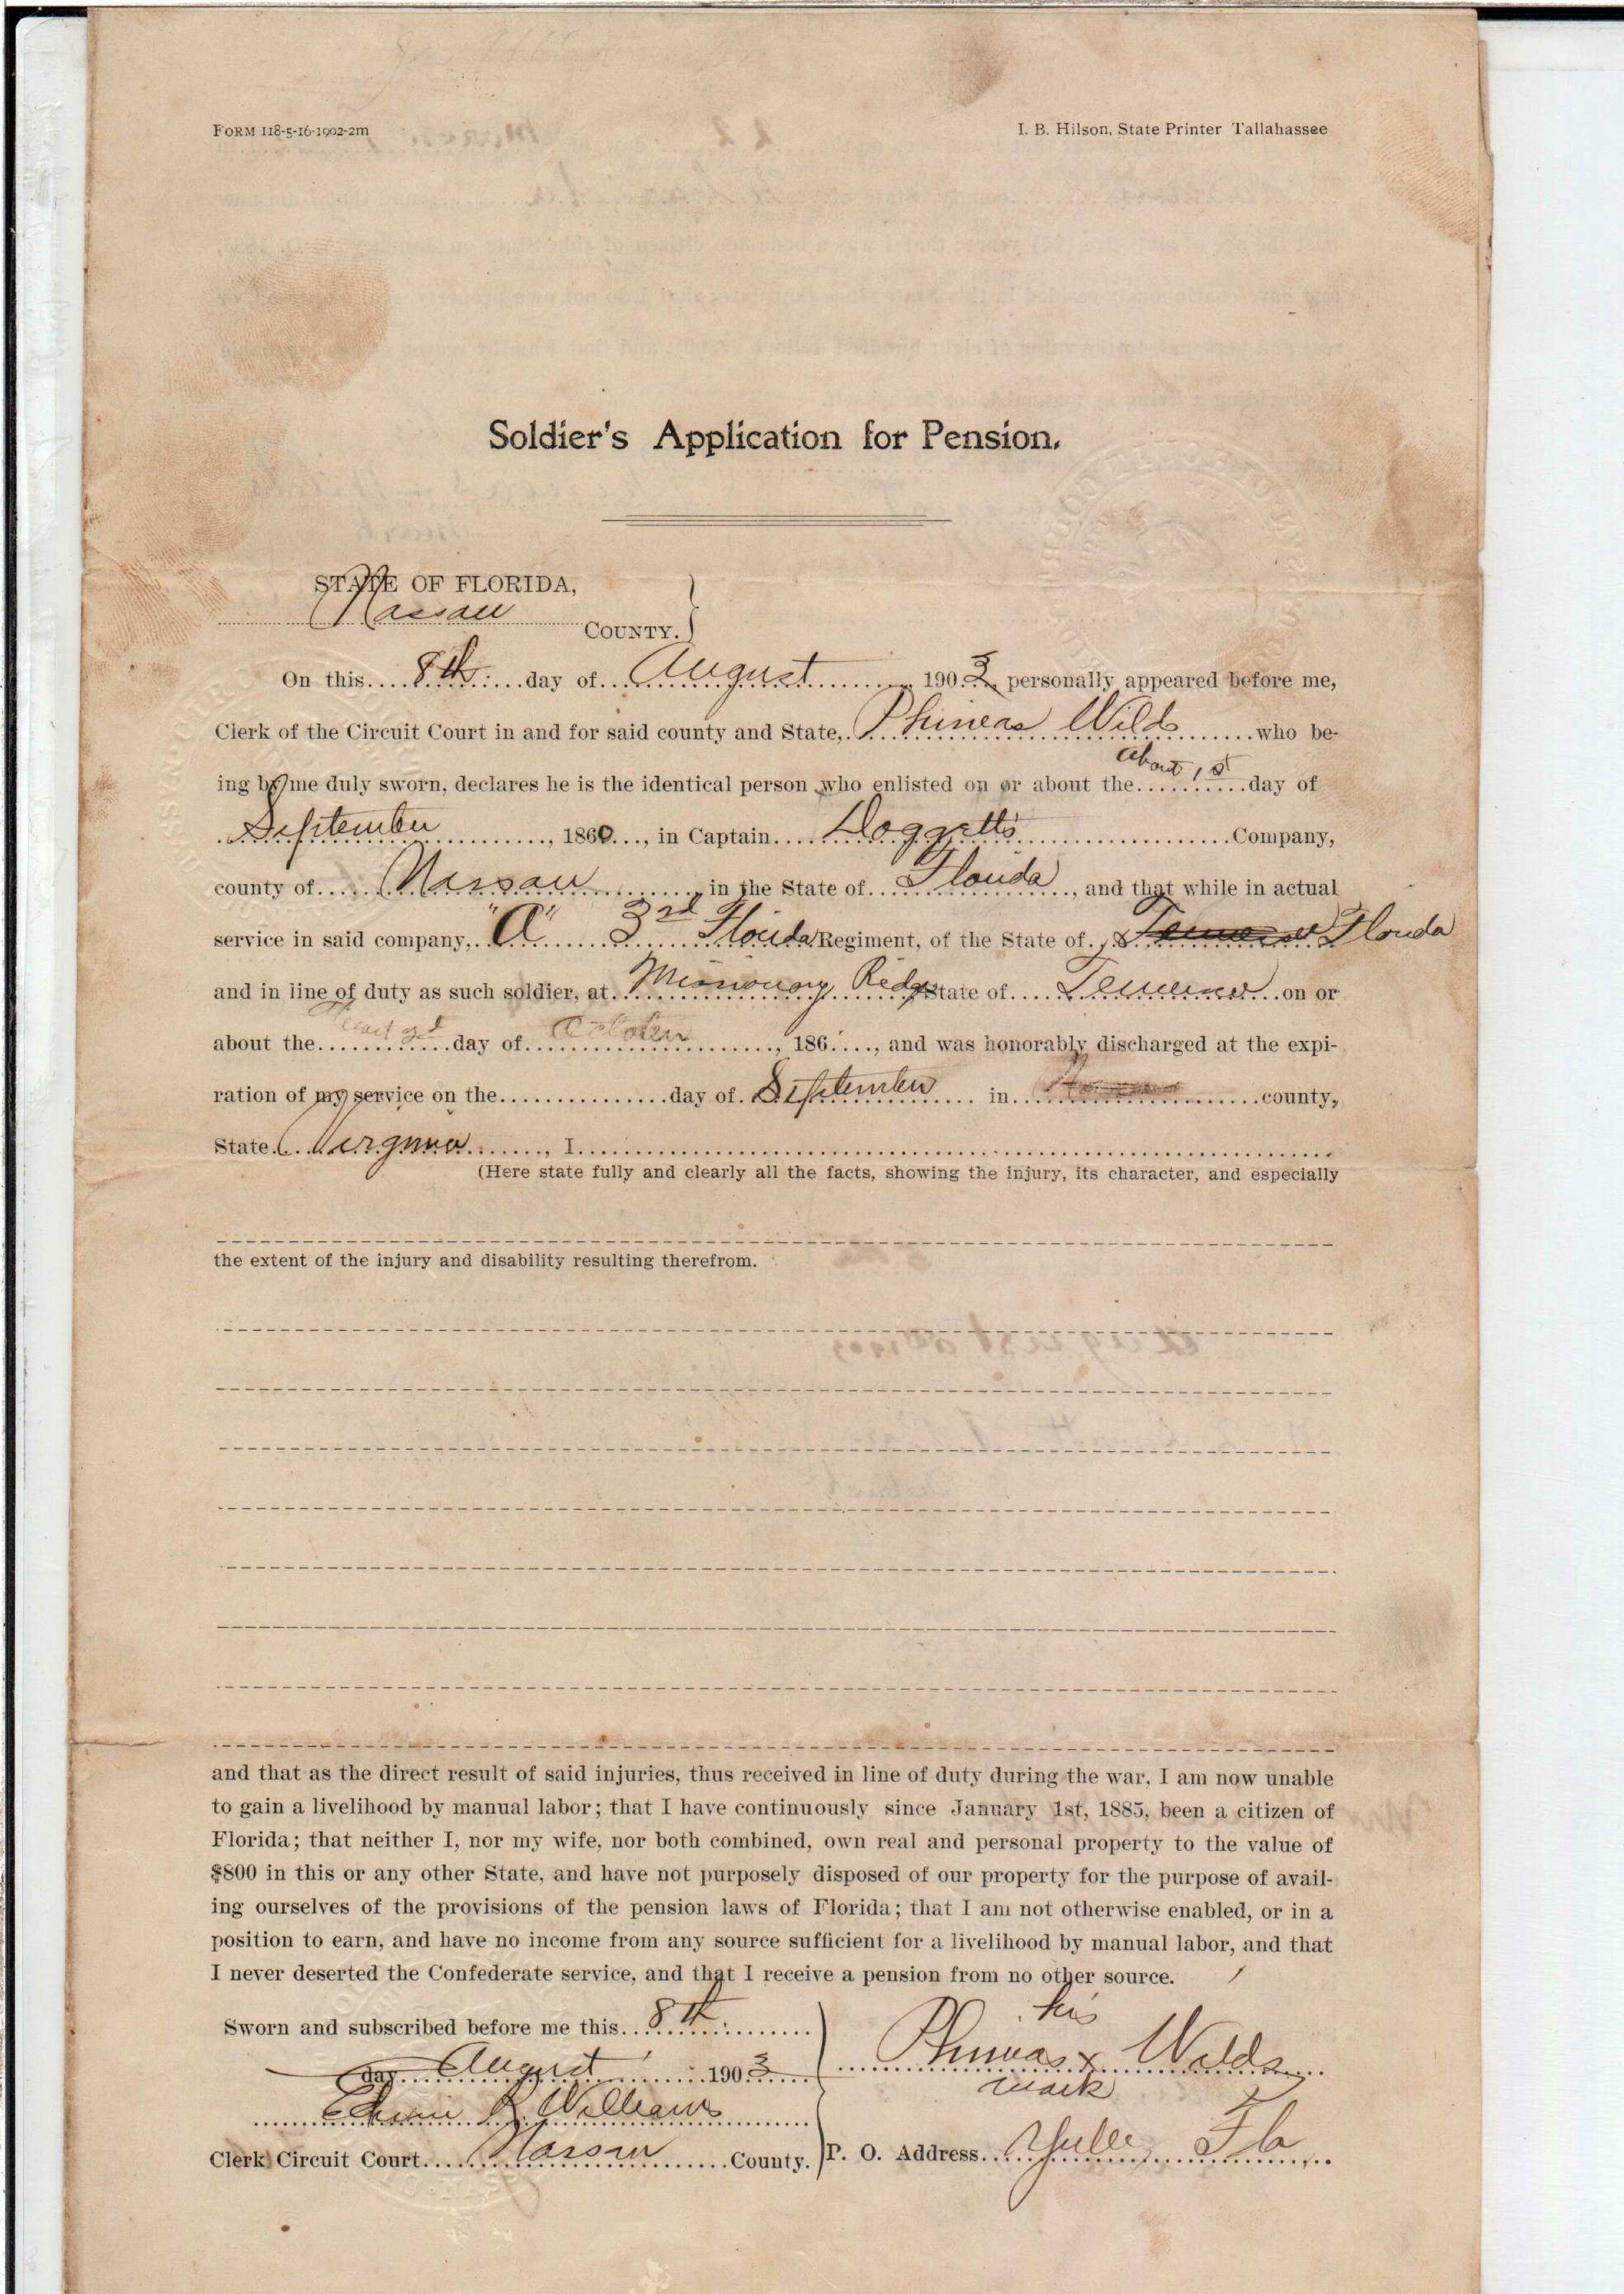 FORM 118-5-16-1902-2m
I. B. Hilson, State Printer Tallahassee
Soldier's Application for Pension.
STATE OF FLORIDA,
Nassau COUNTY.
On this 8th day of August 1903, personally appeared before me,
Clerk of the Circuit Court in and for said county and State, Phineas Wilds who be-
about 1st
ing by me duly sworn, declares he is the identical person who enlisted on or about the day of
September, 1860, in Captain Doggetts Company,
county of Nassau in the State of Florida, and that while in actual
service in said company, "A" 3rd Florida Regiment, of the State of Florida
and in line of duty as such soldier, at Missionary Ridge State of Tennessee on or
about the day of October, 186, and was honorably discharged at the expi-
ration of my service on the day of September in county,
State Virginia, I
(Here state fully and clearly all the facts, showing the injury, its character, and especially
the extent of the injury and disability resulting therefrom.
and that as the direct result of said injuries, thus received in line of duty during the war, I am now unable
to gain a livelihood by manual labor; that I have continuously since January 1st, 1885, been a citizen of
Florida; that neither I, nor my wife, nor both combined, own real and personal property to the value of
$800 in this or any other State, and have not purposely disposed of our property for the purpose of avail-
ing ourselves of the provisions of the pension laws of Florida; that I am not otherwise enabled, or in a
position to earn, and have no income from any source sufficient for a livelihood by manual labor, and that
I never deserted the Confederate service, and that I receive a pension from no other source.
Sworn and subscribed before me this 8th
day August 1903
Edwin R Williams
Clerk Circuit Court Nassau County.
his
Phineas x Wilds
mark
P. O. Address Yulee, Fla